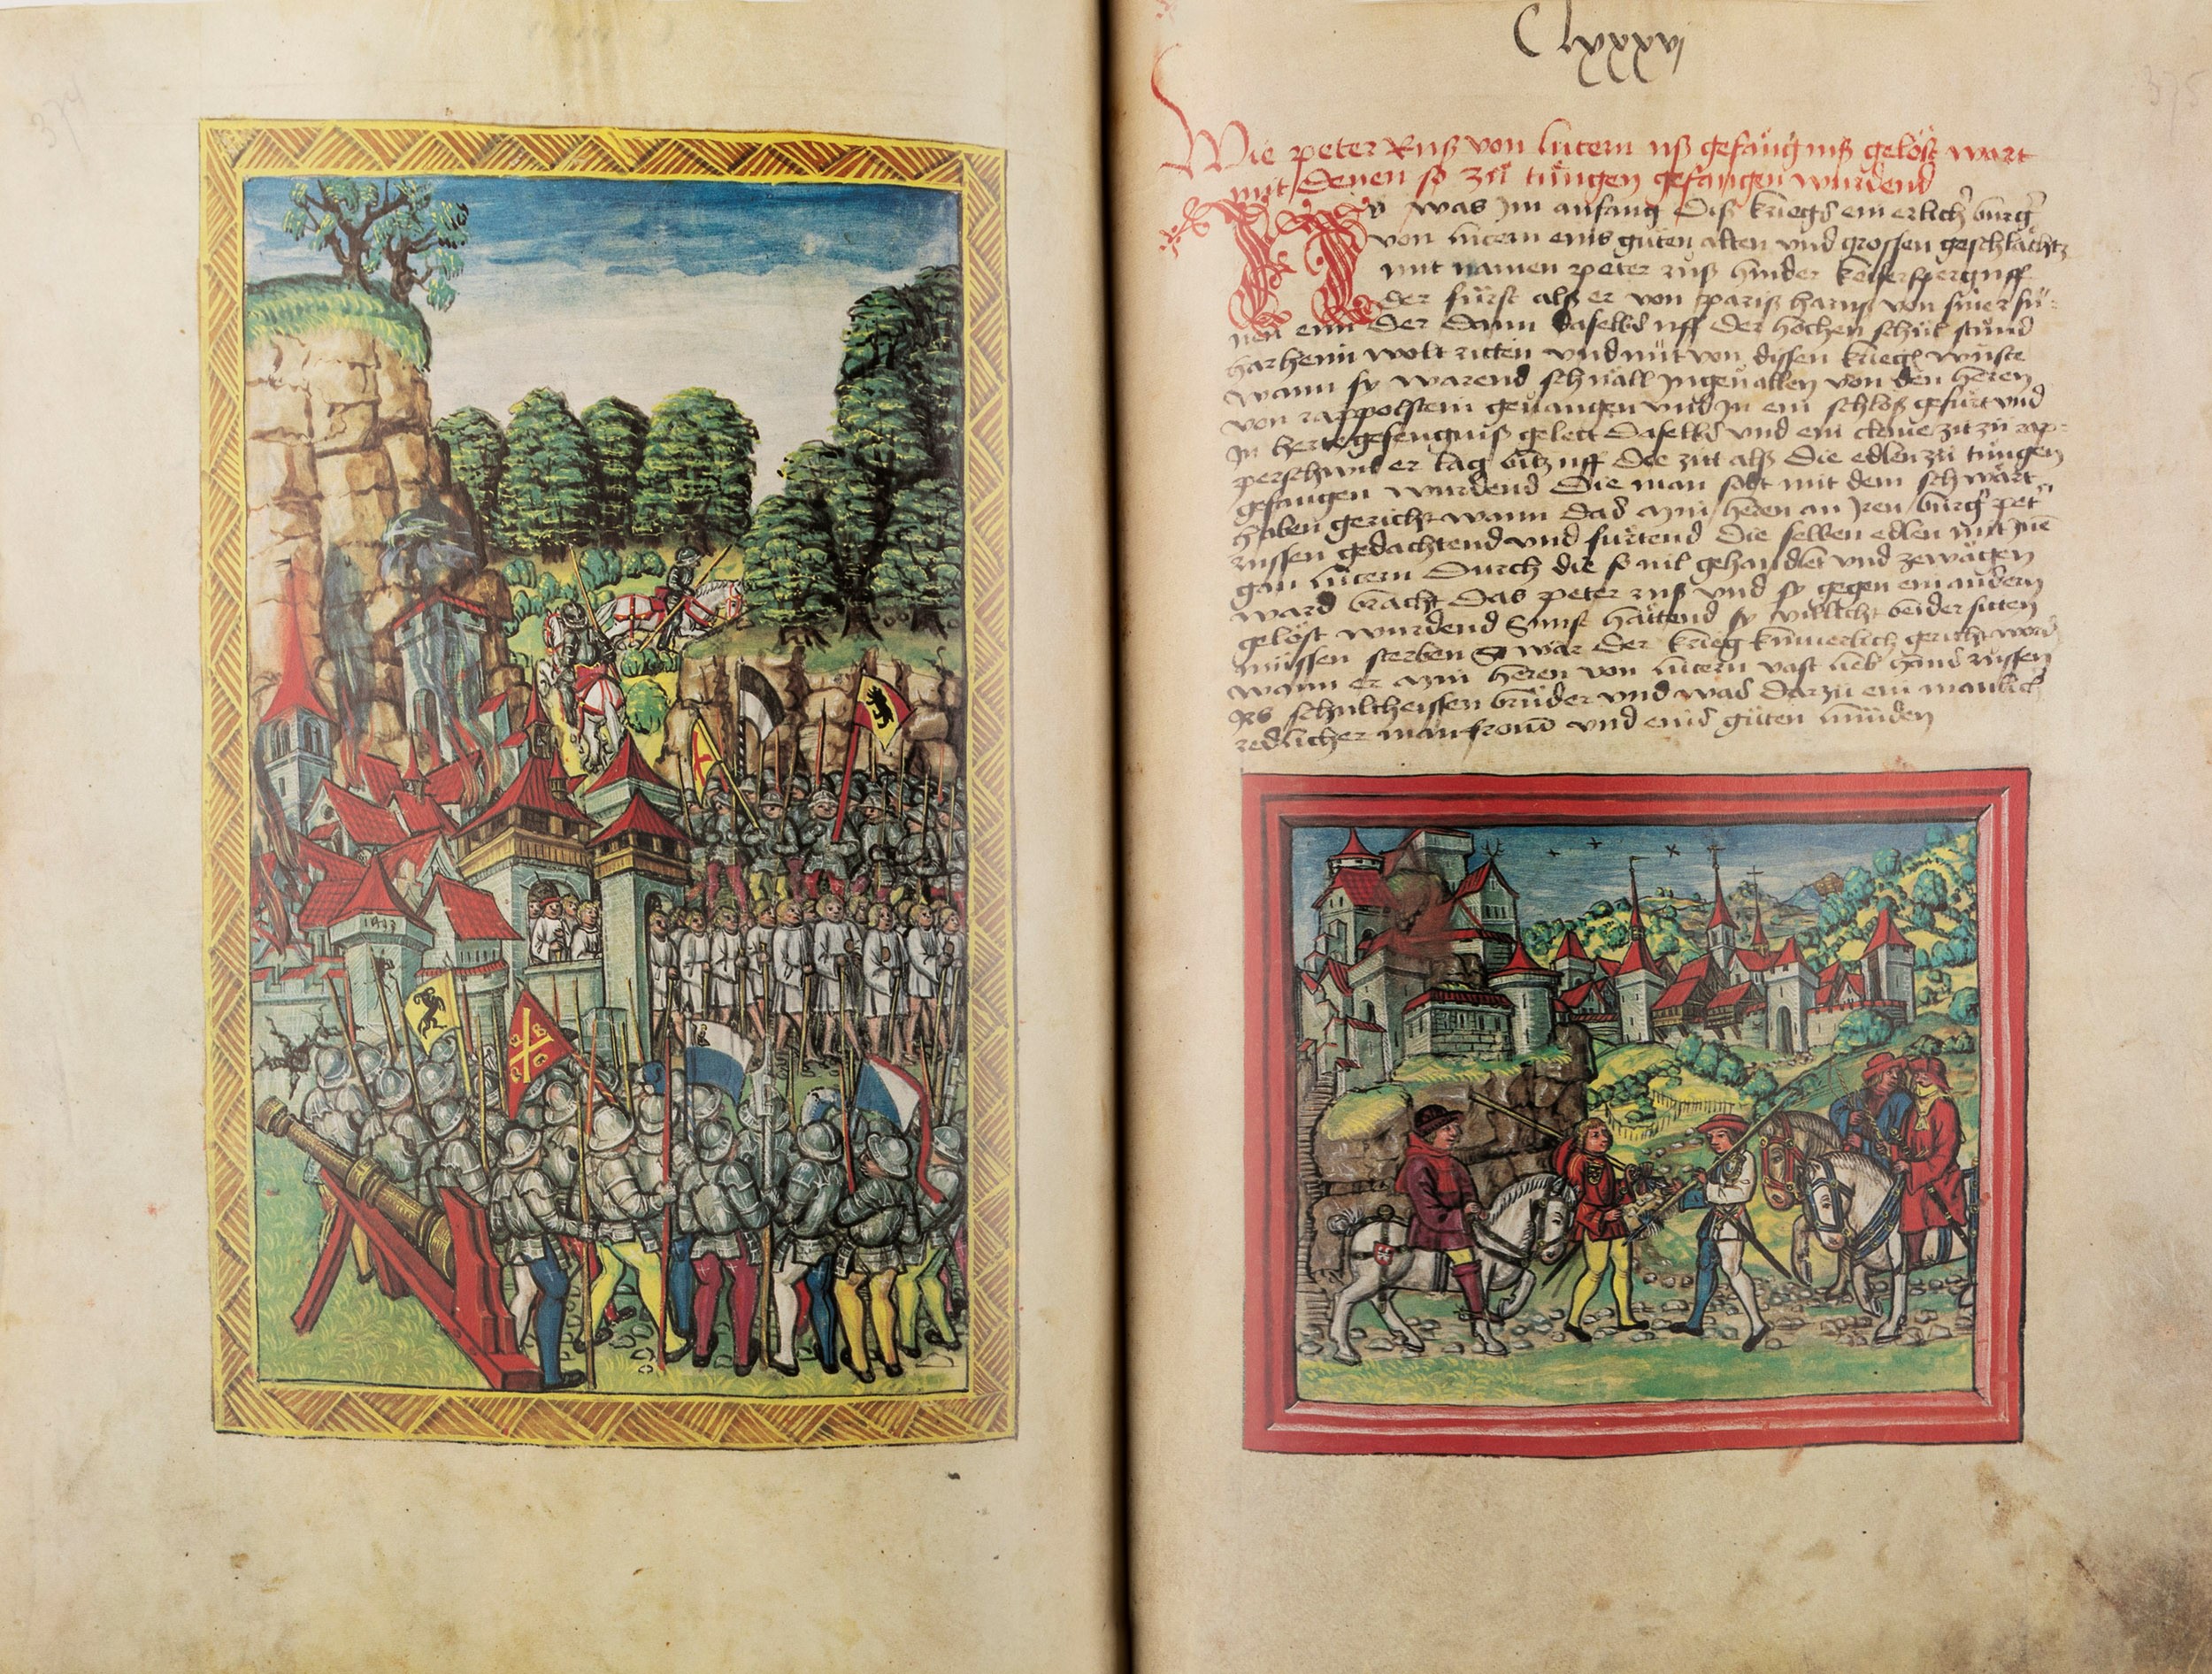 374
Clxxxvj
375
Wie peter Ruß von lucern uß gefängniß gelößt wart
mit denen so zů tüngen gefangen wurdend
was jm anfang diß kriegs ein erlich burg
von lucern eins güten alten und grossen geschlächtz
mit namen peter ruß hinder keisersperguff
der fürst alß er von pariß harus von siner sü-
nen eim der dann daselbs uff der hochen schůl stůnd
harheim wolt ritten und nüt von dissen krieg wüste
wann sy warend schnäll jngeuallen von den heren
von rappolstein geuangen und jn ein schloß gefürt und
jn herte gefengniß geleit daselbs und ein zu rap-
perschwil er lag bitz uff die zitt alß die edlen zů tüngen
gefangen wurdend die man solt mit dem schwärt
haben gericht wann das min heren an jren burg pet
russen gedachtend und fürtend die selben edlen mit jnē
gan lucern durch die so vil gehandlet und zewägen
ward bracht das peter ruß und sy gegen ein andern
gelößt wurdend sunst hättend sy villicht beider sitten
müssen sterben So wär der krieg kümerlich gericht word
wann er min heren von lucern vast lieb hand russen
jrs schultheissen brüder und was darzu ein manlich
redlicher man fromm und eins güten lümden